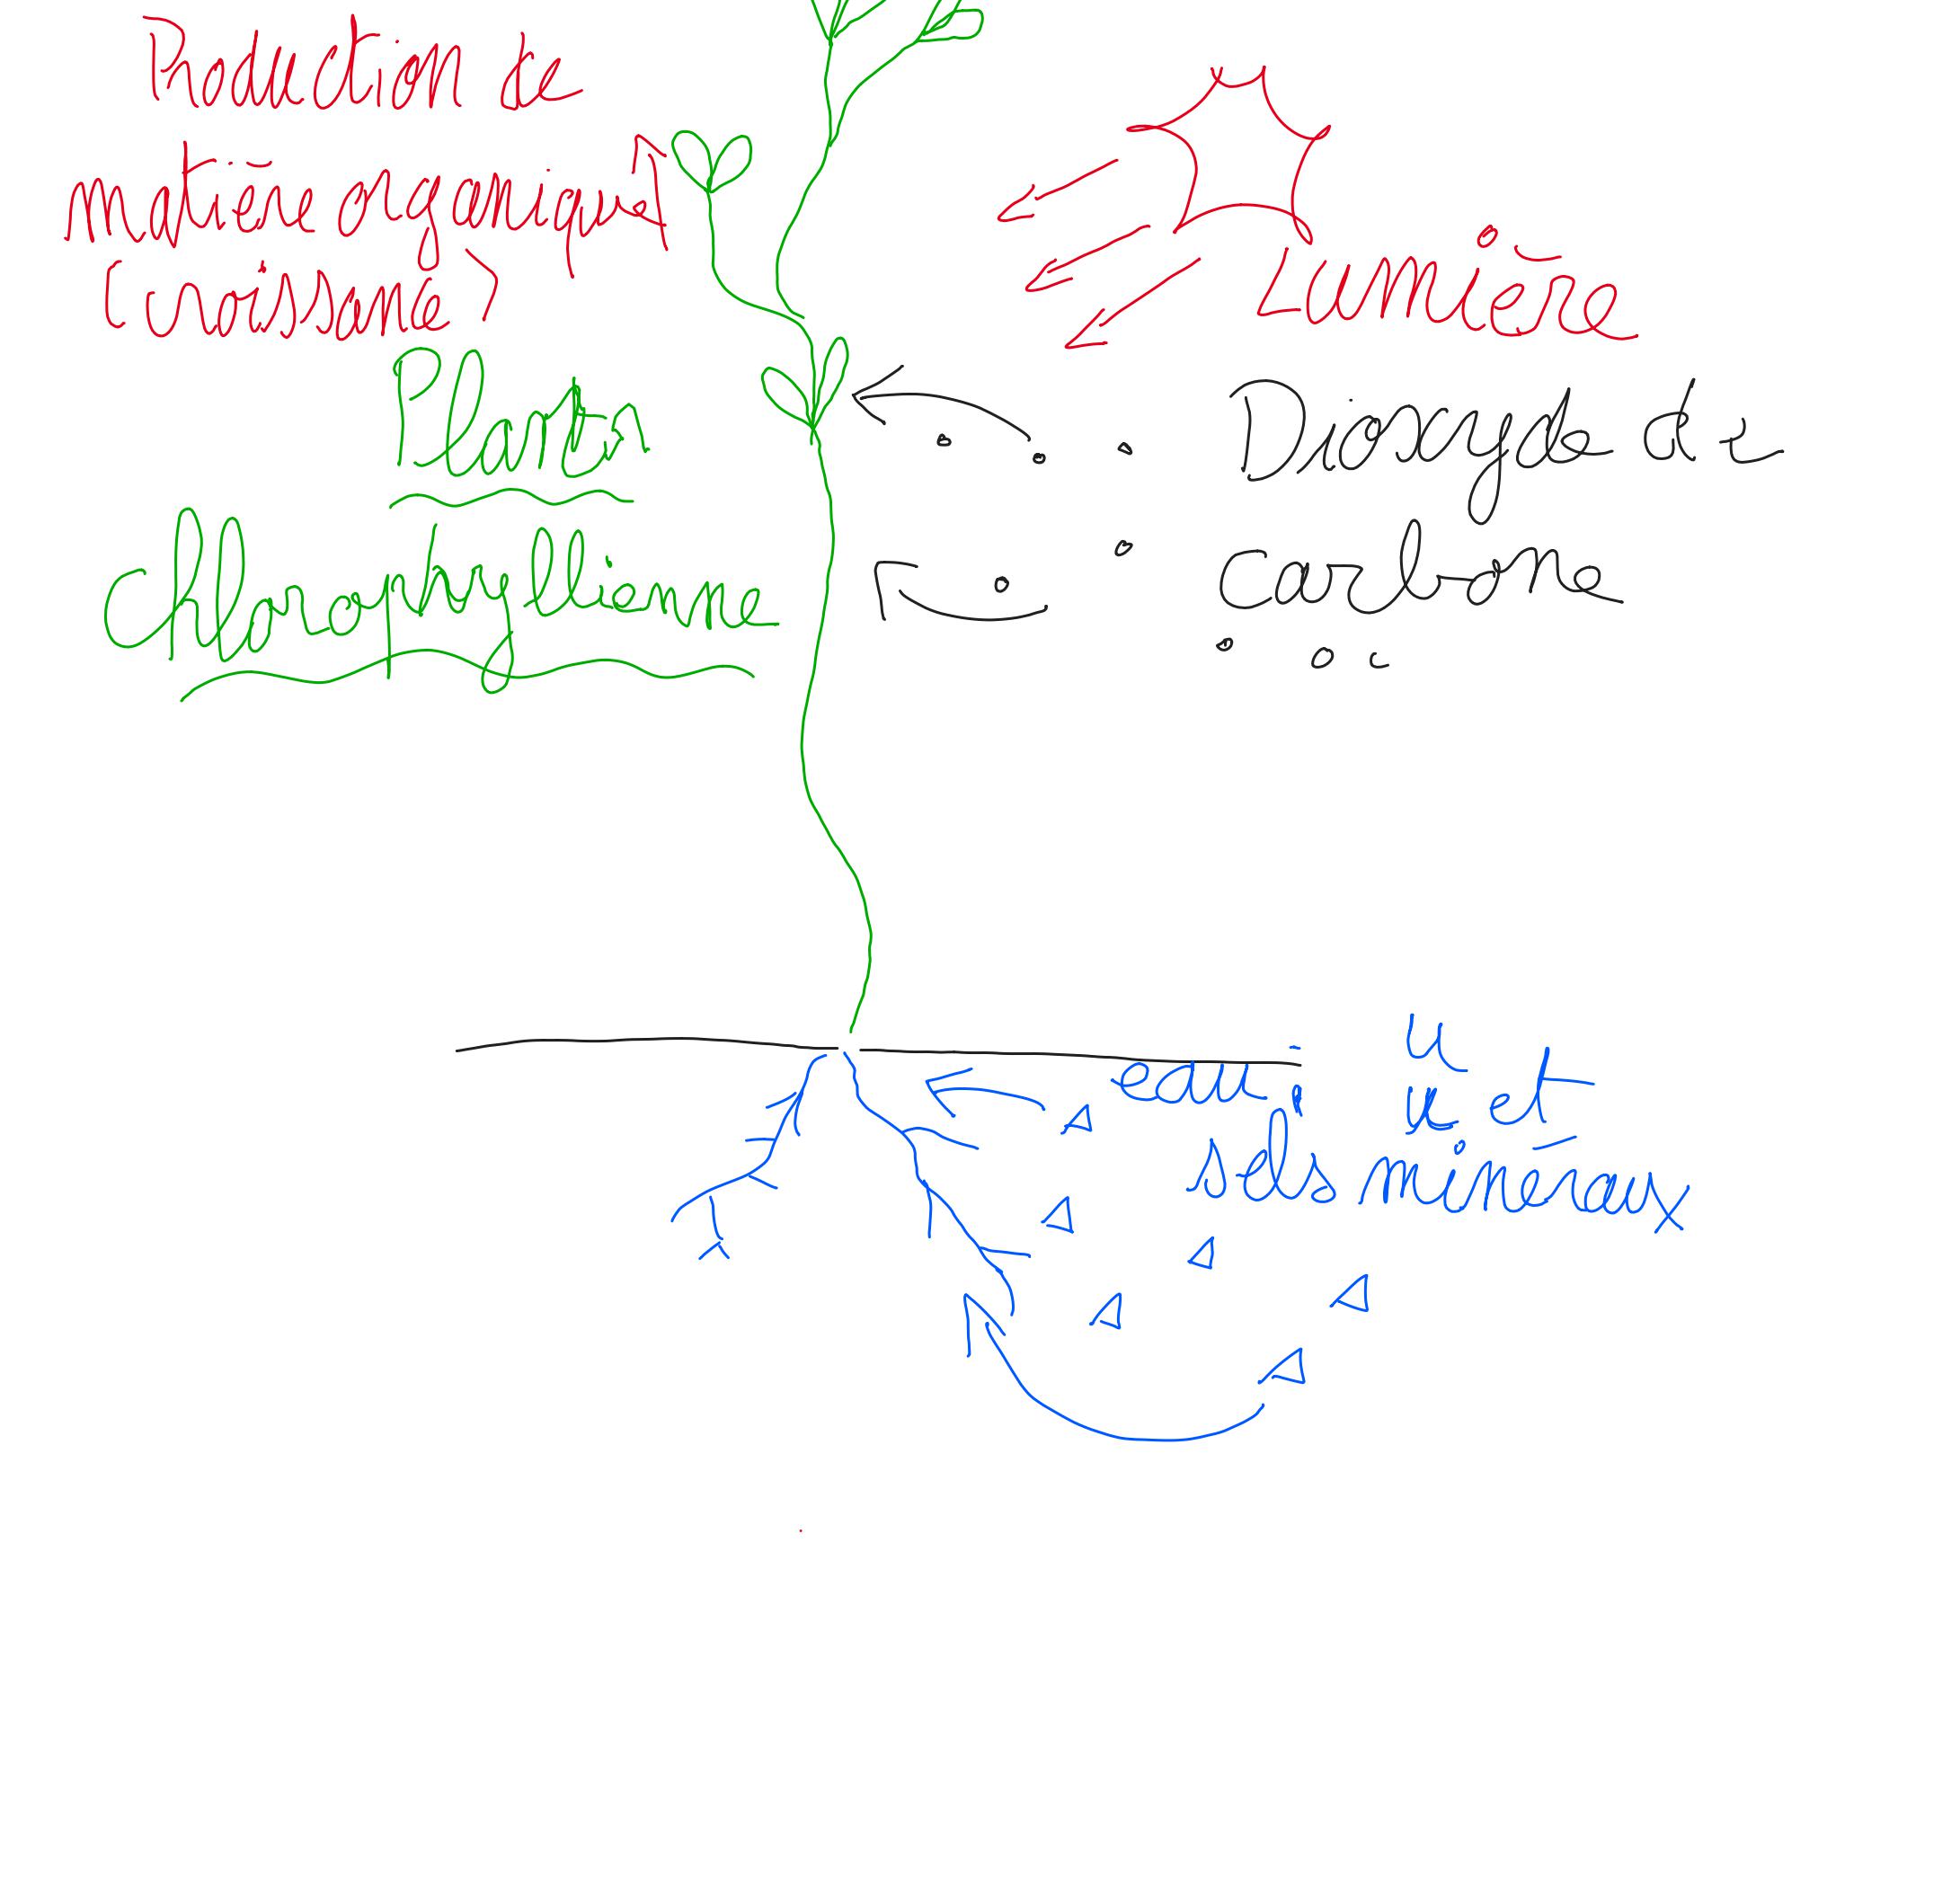 Production de
matière organique
(croissance)
Lumière
Plants
chlorophyllienne
Dioxyde de
carbone
eau, et
sels minéraux